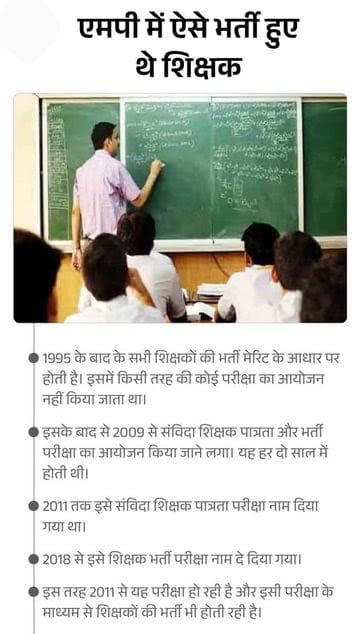 एमपी में ऐसे भर्ती हुए
थे शिक्षक
1995 के बाद के सभी शिक्षकों की भर्ती मेरिट के आधार पर
होती है। इसमें किसी तरह की कोई परीक्षा का आयोजन
नहीं किया जाता था।
इसके बाद से 2009 से संविदा शिक्षक पात्रता और भर्ती
परीक्षा का आयोजन किया जाने लगा। यह हर दो साल में
होती थी।
2011 तक इसे संविदा शिक्षक पात्रता परीक्षा नाम दिया
गया था।
2018 से इसे शिक्षक भर्ती परीक्षा नाम दे दिया गया।
इस तरह 2011 से यह परीक्षा हो रही है और इसी परीक्षा के
माध्यम से शिक्षकों की भर्ती भी होती रही है।